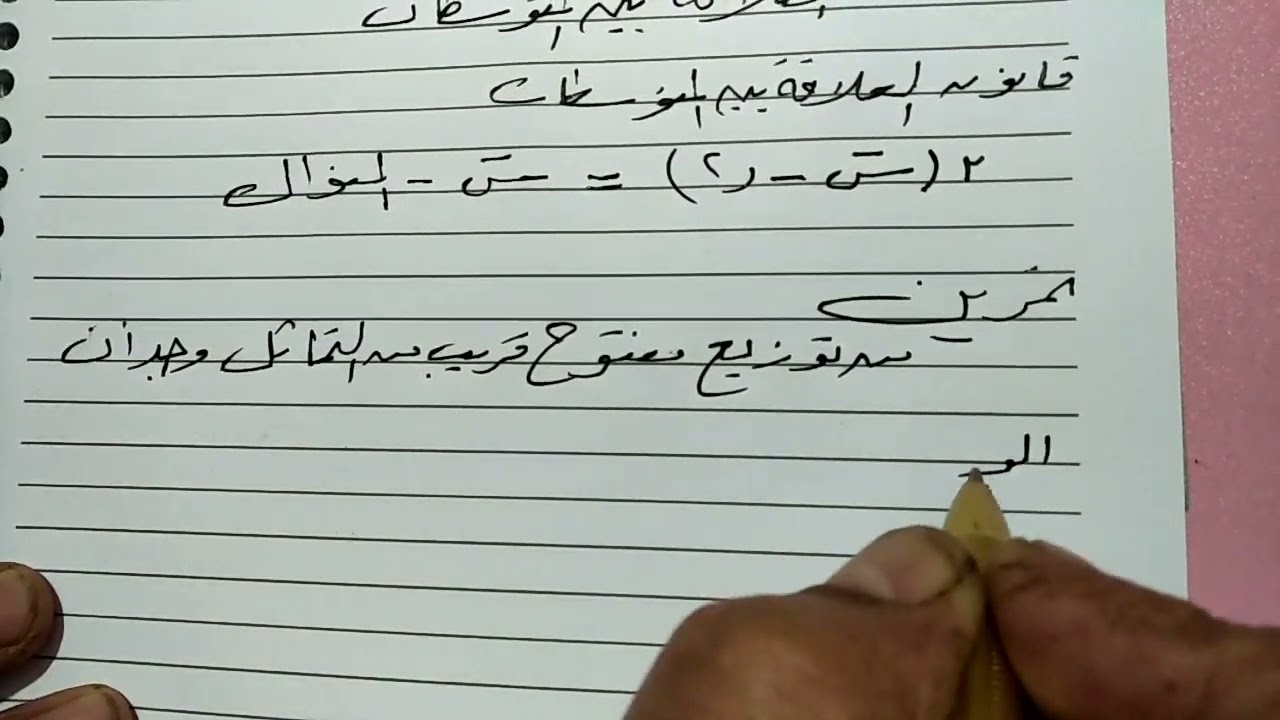 العلاقة بين المتوسطات
قانون العلاقة بين المتوسطات
٢ (س̅ - ر٢) = س̅ - المنوال
تمرين
من توزيع مفتوح قريب من التماثل وجد أن
الو